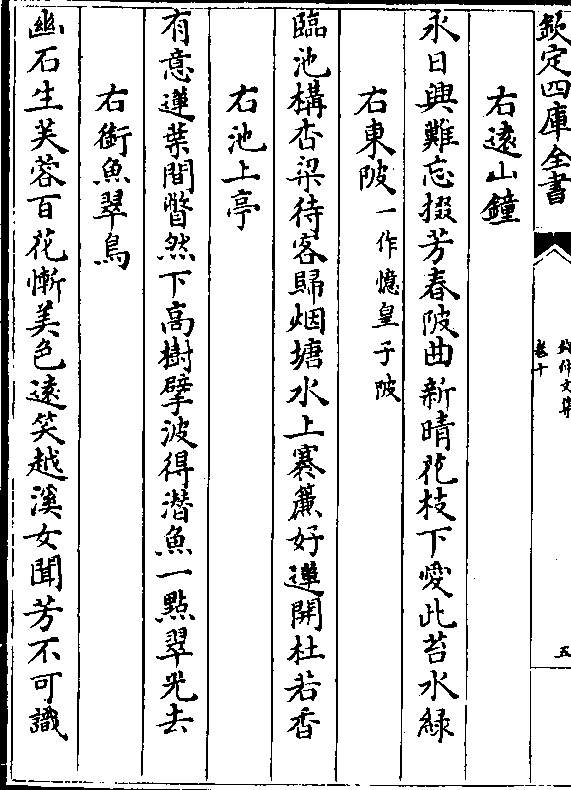 欽定四庫全書
卷十
五
右遠山鐘
永日興難忘掇芳春陂曲新晴花枝下愛此苔水緑
右東陂一作憶皇子陂
臨池構杏梁待客歸烟塘水上褰簾好蓮開杜若香
右池上亭
有意蓮葉間瞥然下高樹擘波得潛魚一點翠光去
右銜魚翠鳥
幽石生芙蓉百花慚美色遠笑越溪女聞芳不可識